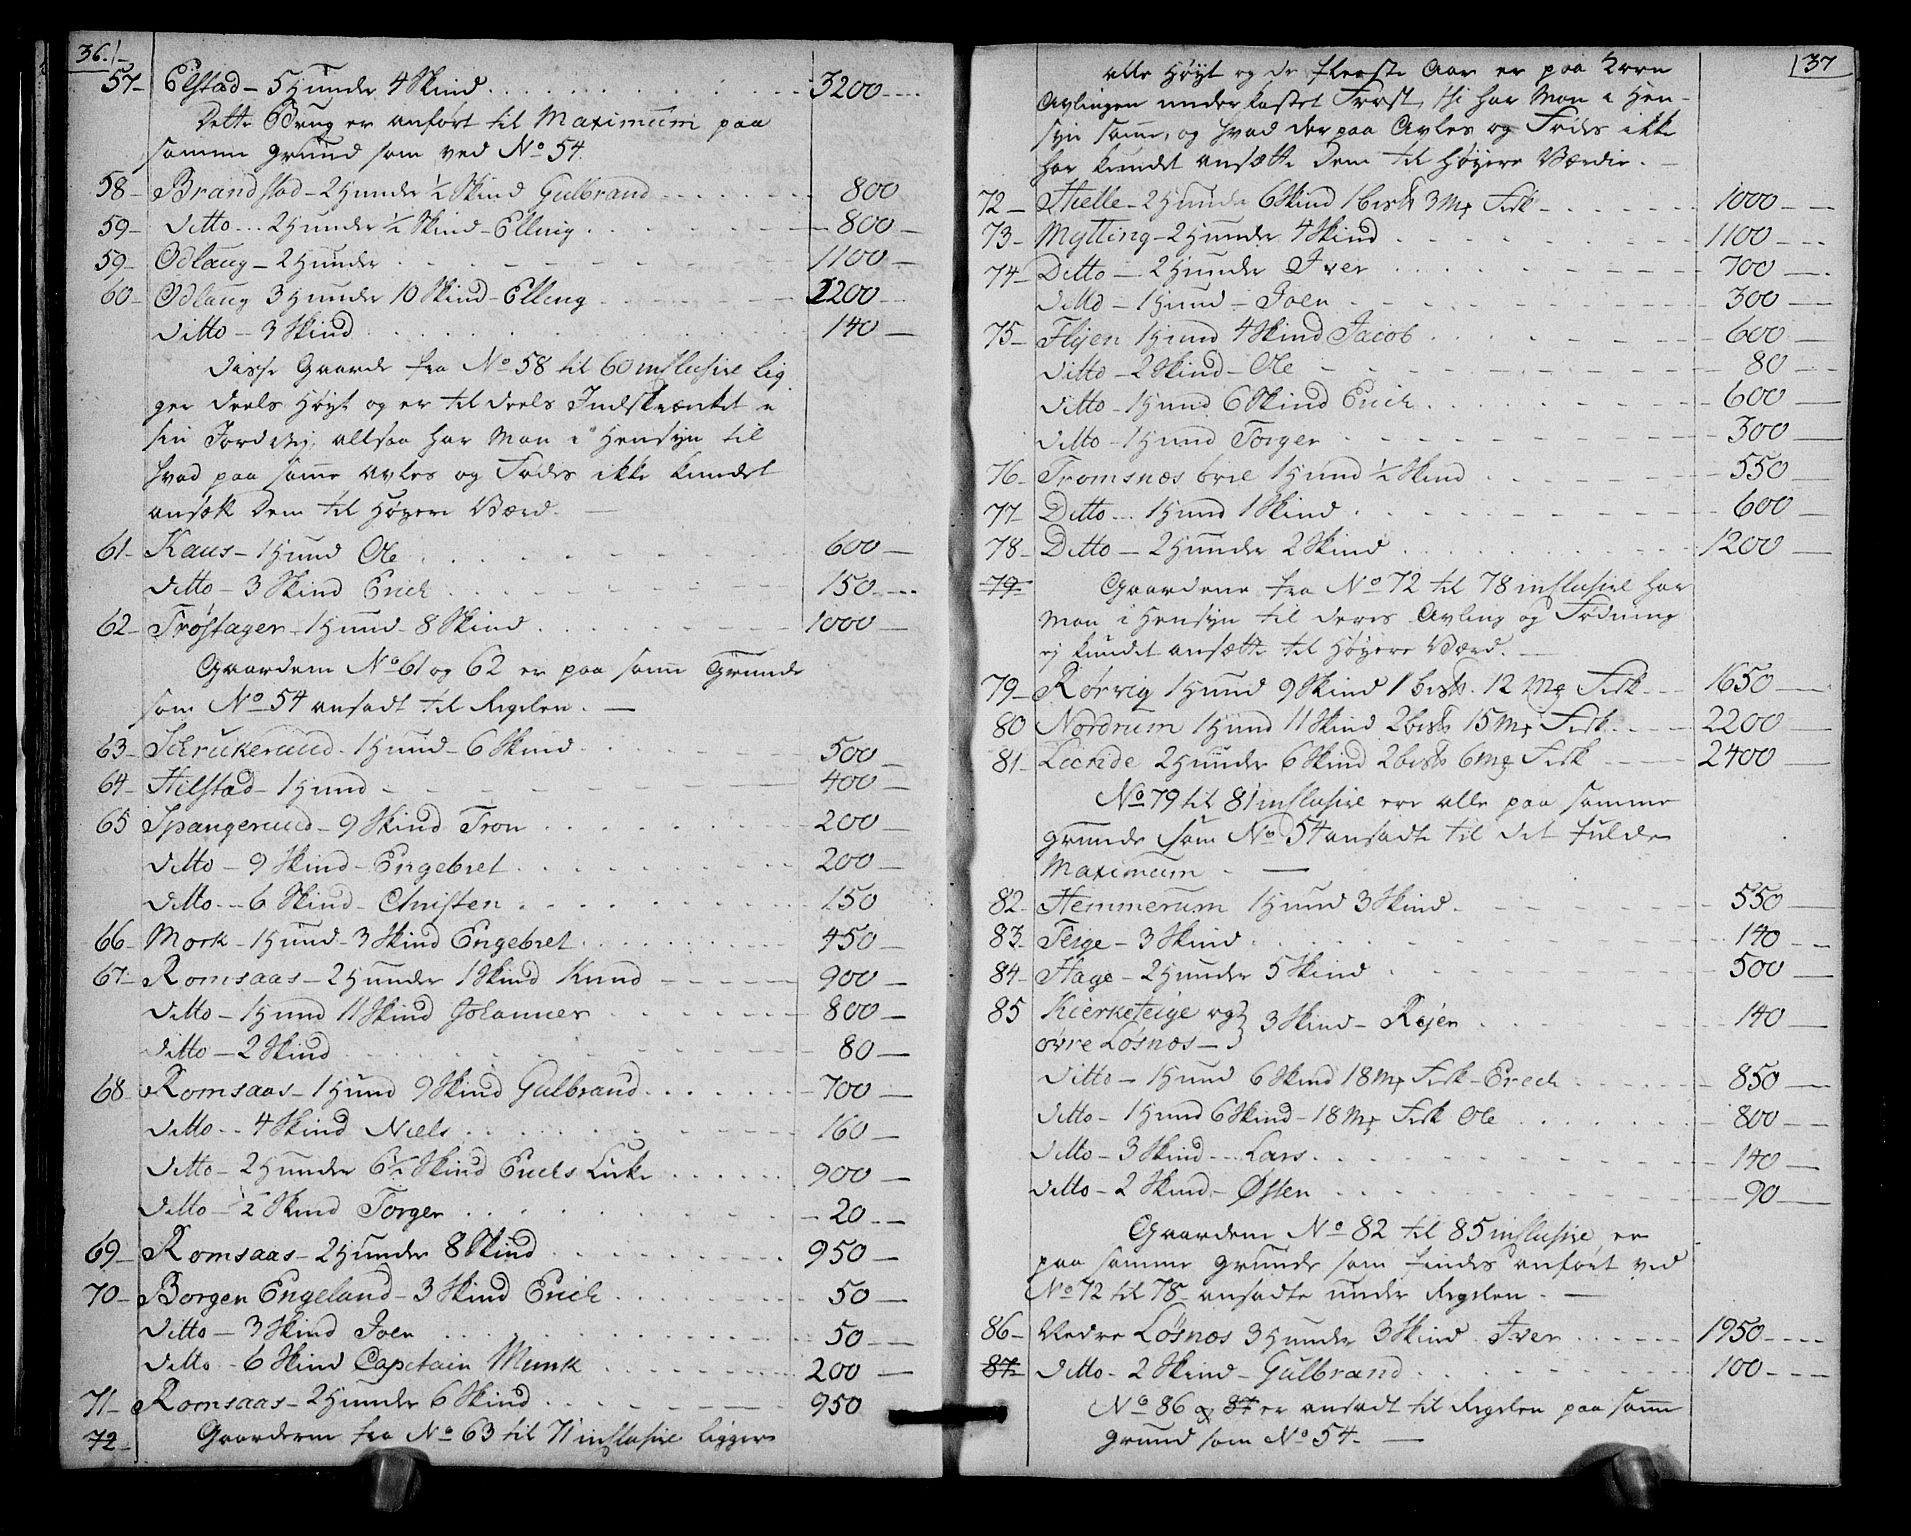 36.
57- Elstad - 5 Hunder 4 Skind 3200
Dette Brug er anført til Maximum paa
samme Grund som ved No 54.
58- Brandstad - 2 Hunder ½ Skind Gulbrand 800
59- Ditto - 2 Hunder ½ Skind - Elling 800
59- Odlaug - 2 Hunder 1100
60- Odlaug 3 Hunder 10 Skind - Elling 2200
Ditto - 3 Skind 140
Disse Gaarde fra No 58 til 60 inclusive lig
ger deels Høyt og er til deels Indskrænket i
sin Jordvej, altsaa har Man i Hensyn til
hvad paa same avles og Fødes ikke kundet
ansætte Dem til Høyere Værd. -
61- Kaus - 1 Hund Ole 600
Ditto - 3 Skind Erich 150
62- Trøstager - 1 Hund - 8 Skind 1000
Gaardene No 61 og 62 er paa same Grunde
som No 54 ansadt til Regelen. -
63- Schrukerud - 1 Hund - 6 Skind 500
64- Hilstad - 1 Hund 400
65 Spangerud - 9 Skind Tron 200
Ditto - 9 Skind - Engebret 200
Ditto - 6 Skind - Christen 150
66- Mork - 1 Hund - 3 Skind Engebret 450
67- Romsaas - 2 Hunder 1 Skind Knud 900
Ditto - 1 Hund 11 Skind Johannes 800
Ditto - 2 Skind 80
68- Romsaas - 1 Hund 9 Skind Gulbrand 700
Ditto - 4 Skind Niels 160
Ditto - 2 Hunder 6½ Skind Erichs Enke 900
Ditto - ½ Skind Torger 20
69- Romsaas - 2 Hunder 8 Skind 950
70- Borgen Engeland - 3 Skind Erich 50
Ditto - 3 Skind Joen 50
Ditto - 6 Skind Capitain Munk 200
71- Romsaas - 2 Hunder 6 Skind 950
72- Gaardene fra No 63 til 71 inclusive ligger
37
alle Høyt og de fleeste Aar er paa Korn
Avlingen underkastet Frost, thi har Man i Hen-
syn same, og hvad derpaa Avles og Fødes ikke
har kundet ansætte Dem til Høyere Værdie. -
72- Hielle - 2 Hunder 6 Skind 1 bisk 3 Mg Fisk 1000
73- Mytting - 2 Hunder 4 Skind 1100
74- Ditto - 2 Hunder Iver 700
Ditto - 1 Hund - Joen 300
75- Flyen 1 Hund 4 Skind Jacob 600
Ditto - 2 Skind - Ole 80
Ditto - 1 Hund 6 Skind Erich 600
Ditto - 1 Hund Torger 300
76- Tromsnæs øvre 1 Hund ½ Skind 550
77- Ditto - 1 Hund 1 Skind 600
78- Ditto - 2 Hunder 2 Skind 1200
79- Gaardene fra No 72 til 78 inclusive har
Man i Hensyn til deres Avling og Fødning
ej kundet ansætte til Høyere Værd. -
79- Rørvig 1 Hund 9 Skind 1 bisk. 12 Mg Fisk 1650
80 Nordrum 1 Hund 11 Skind 2 bisk 15 Mg Fisk 2200
81- Liende 2 Hunder 6 Skind 2 bisk 6 Mg Fisk 2400
No 79 til 81 inclusive ere alle paa samme
Grunde som No 54 ansadte til det fulde
Maximum -
82- Hemmerum 1 Hund 3 Skind 550
83- Teige - 3 Skind 140
84- Hage - 2 Hunder 5 Skind 500
85 Kierketeige og
øvre Løsnæs - } 3 Skind - Rejer 140
Ditto - 1 Hund 6 Skind 18 Mg Fisk - Erech 850
Ditto - 1 Hund 6 Skind - 18 Mg Fisk Ole 800
Ditto - 3 Skind - Lars 140
Ditto - 2 Skind - Østen 90
Gaardene No 82 til 85 inclusive, er
paa samme Grunde som findes anført ved
No 72 til 78 ansadte under Regelen. -
86- Nedre Løsnæs 3 Hunder 3 Skind Iver 1950
87- Ditto - 2 Skind - Gulbrand 100
No 86 og 87 er ansadt til Regelen paa same
Grund som No 54. -